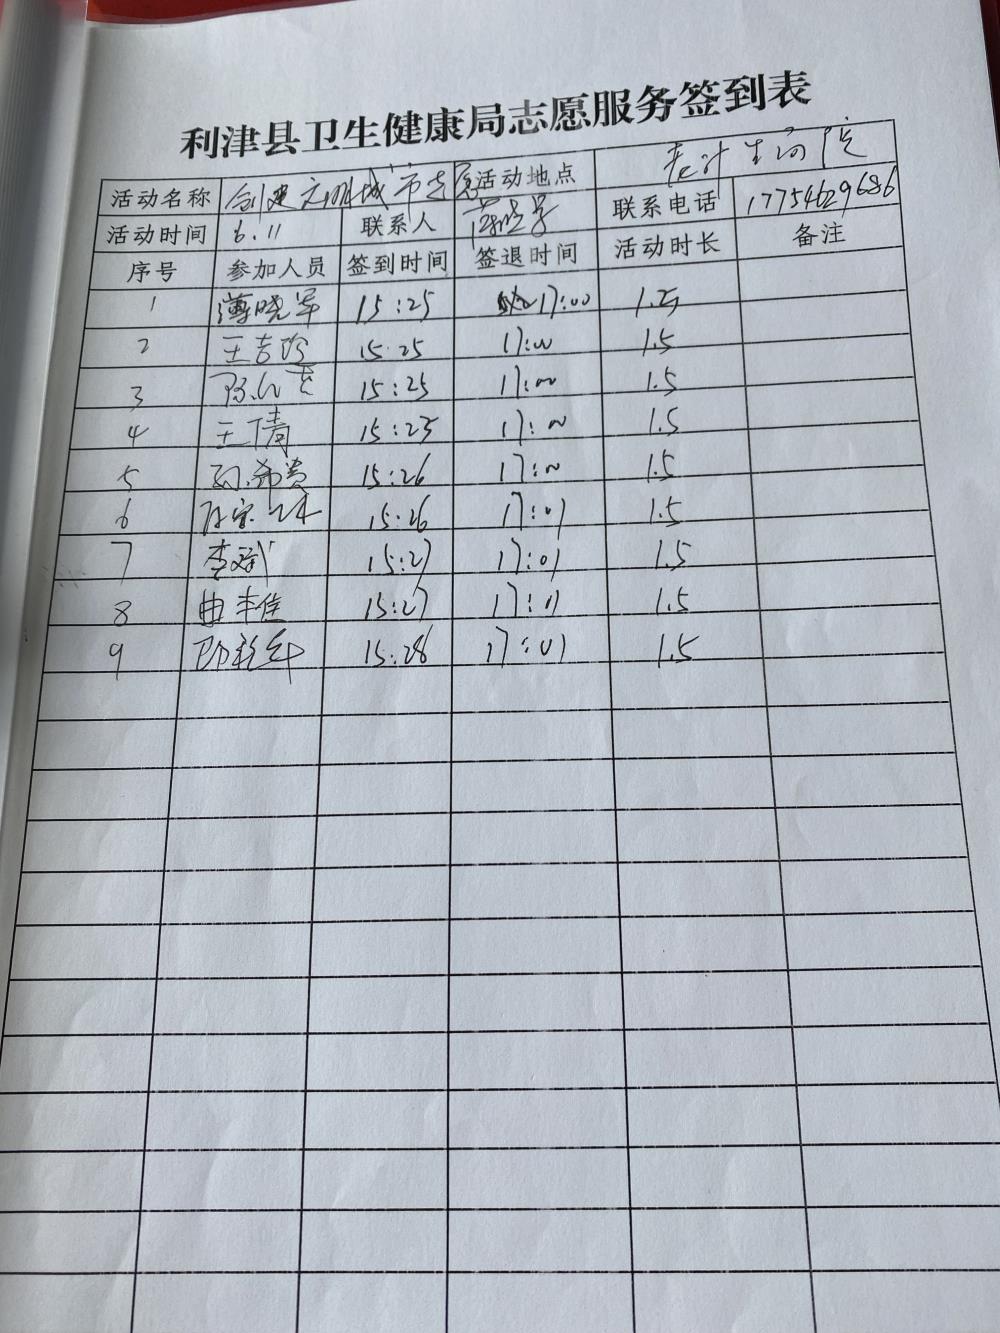 利津县卫生健康局志愿服务签到表
活动名称 创建文明城市志愿 活动地点 老计生局院
活动时间 6.11 联系人 联系电话 17754629686
序号 参加人员 签到时间 签退时间 活动时长 备注
1 薄晓军 15:25 17:00 1.5
2 王吉珍 15:25 17:00 1.5
3 15:25 17:00 1.5
4 王倩 15:25 17:00 1.5
5 15:26 17:00 1.5
6 15:26 17:01 1.5
7 李斌 15:27 17:01 1.5
8 曲丰佳 15:27 17:01 1.5
9 15:28 17:01 1.5